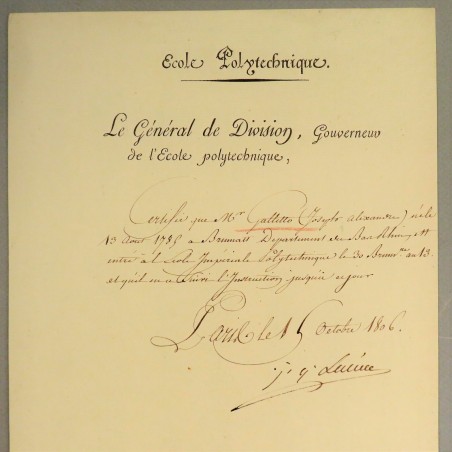 Ecole Polytechnique.
Le Général de Division, Gouverneur
de l'Ecole polytechnique,
Certifie que Mr Gallitto (Joseph Alexandre) né le
13 Aout 1785 a Département du Bas Rhin, est
entré à l'Ecole Impériale Polytechnique le 30 Brumre an 13
et qu'il en a Suivi l'Instruction jusqu'à ce jour
Paris le 15 Octobre 1806.
J. G. Lacuée